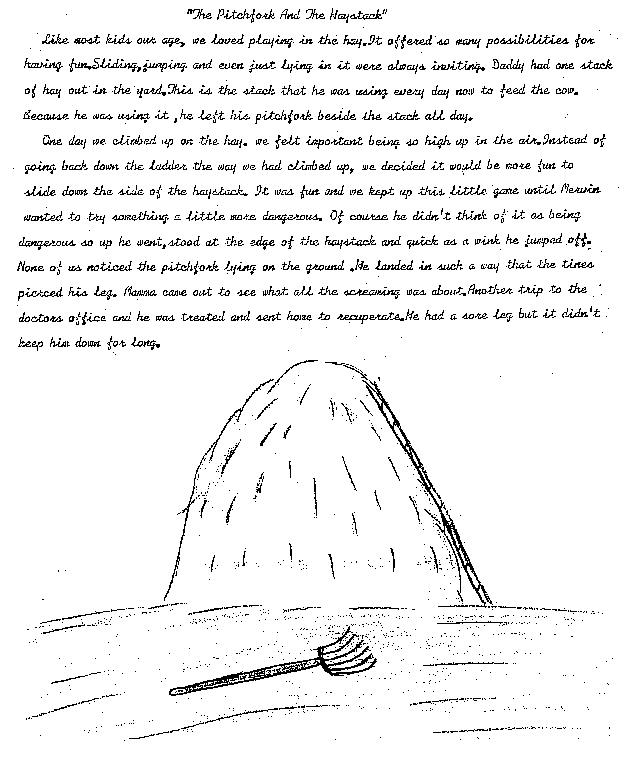 "The Pitchfork And The Haystack"
Like most kids our age, we loved playing in the hay.It offered so many possibilities for
having fun.Sliding,jumping and even just lying in it were always inviting. Daddy had one stack
of hay out in the yard.This is the stack that he was using every day now to feed the cow.
Because he was using it ,he left his pitchfork beside the stack all day.
One day we climbed up on the hay. we felt important being so high up in the air.Instead of
going back down the ladder the way we had climbed up, we decided it would be more fun to
slide down the side of the haystack. It was fun and we kept up this little game until Merwin
wanted to try something a little more dangerous. Of course he didn't think of it as being
dangerous so up he went,stood at the edge of the haystack and quick as a wink he jumped off.
None of us noticed the pitchfork lying on the ground .He landed in such a way that the tines
pierced his leg. Mamma came out to see what all the screaming was about.Another trip to the
doctors office and he was treated and sent home to recuperate.He had a sore leg but it didn't
keep him down for long.